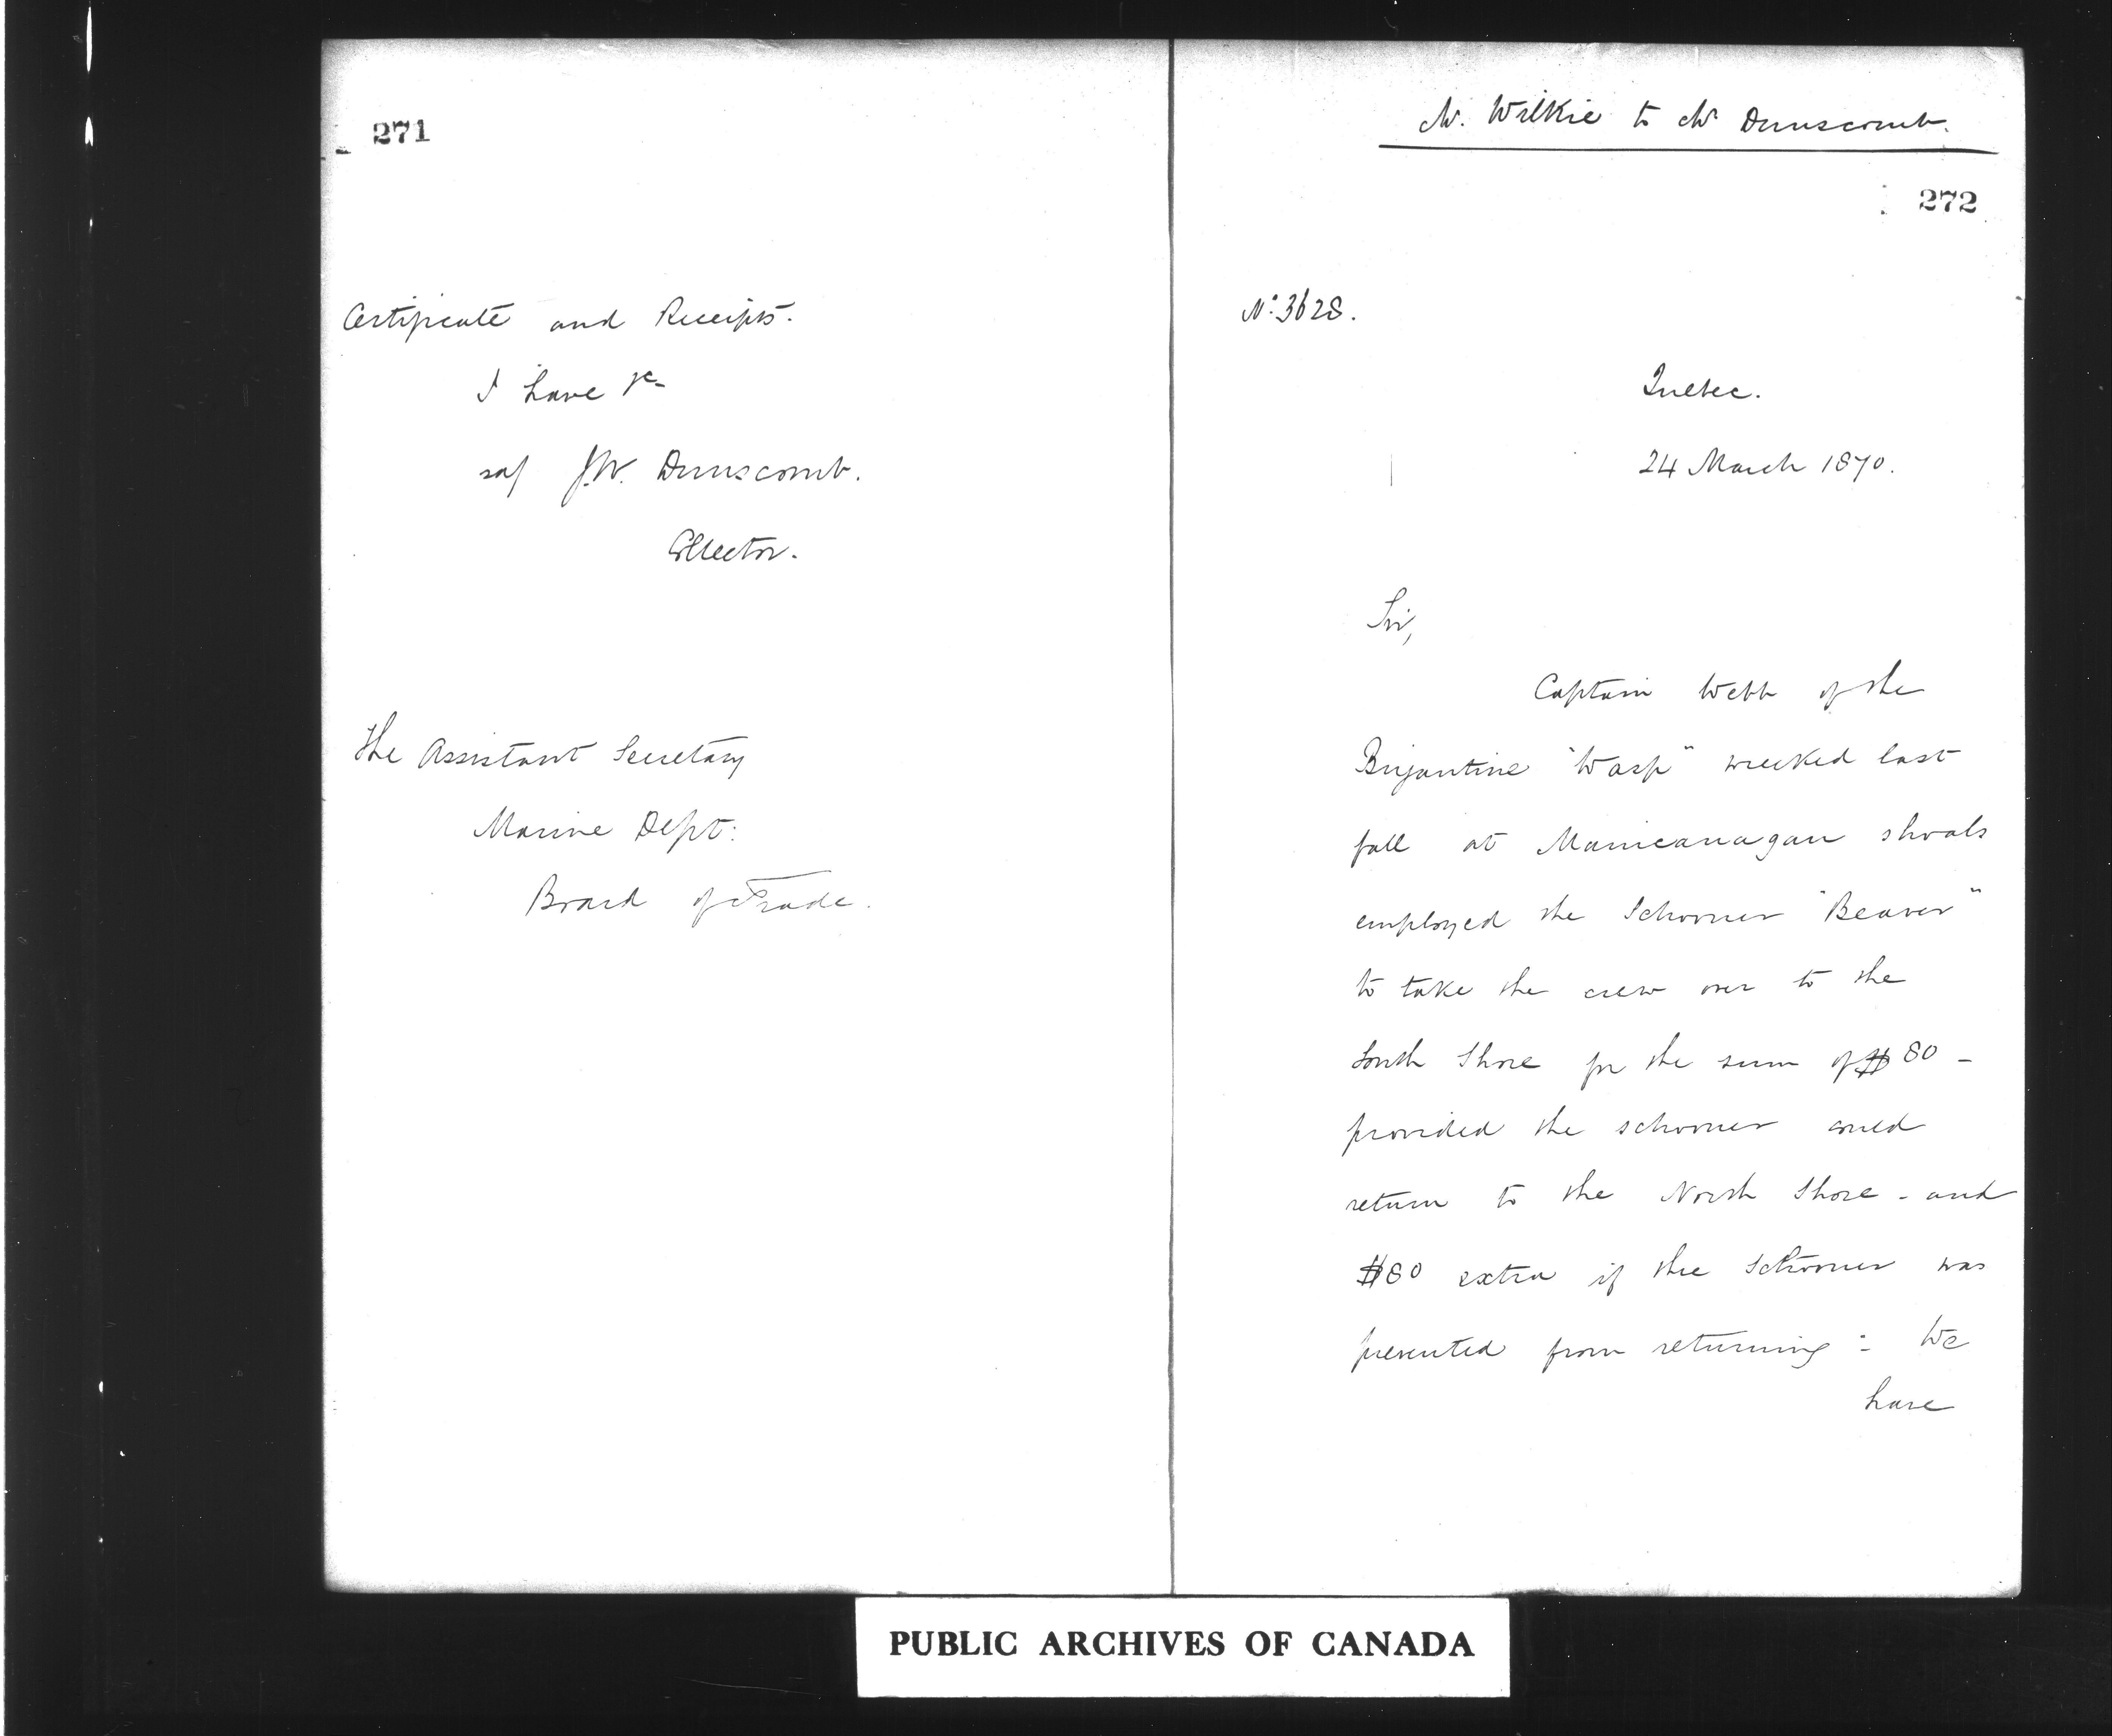 271
Certificate and Receipts.
I have &c
J.W. Dunscomb.
Collector.
The Assistant Secretary
Marine Dept:
Board of Trade.
Mr. Wilkie to Mr Dunscomb.
272
No: 3628.
Quebec.
24 March 1870.
Sir,
Captain Webb of the
Brigantine "Wasp" wrecked last
fall at Manicanagan shoals
employed the Schooner "Beaver"
to take the crew over to the
South Shore for the sum of $80 -
provided the schooner could
return to the North Shore - and
$80 extra if the Schooner was
prevented from returning :- We
have
PUBLIC ARCHIVES OF CANADA